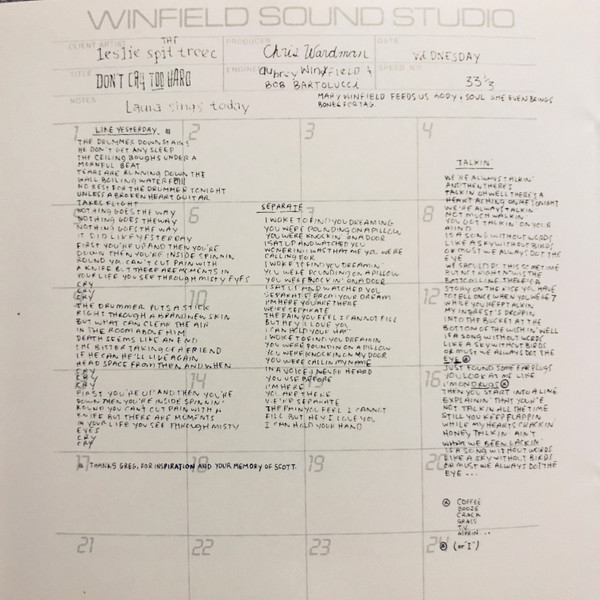 WINFIELD SOUND STUDIO
CLIENT ARTIST
THE
leslie spit treeo
PRODUCER
Chris Wardman
DATE
WEDNESDAY
TITLE
DON'T CRY TOO HARD
ENGINEER
Aubrey WINFIELD +
BOB BARTOLUCCI
SPEED
33 1/3
NOTES
Laura sings today
MARY WINFIELD FEEDS US BODY + SOUL SHE EVEN BRINGS
BONES FOR TAG.
1
LIKE YESTERDAY
THE DRUMMER DOWNSTAIRS
HE DON'T GET ANY SLEEP
THE CEILING BOUGHS UNDER A
MORNFUL BEAT
TEARS ARE RUNNING DOWN THE
WALL BOILING WATERFALL
NO REST FOR THE DRUMMER TONIGHT
UNLESS A BROKEN HEART GUITAR
TAKES FLIGHT
NOTHING GOES THE WAY
NOTHING GOES THE WAY
NOTHING GOES THE WAY
IT DID LIKE YESTERDAY
FIRST YOU'RE UP AND THEN YOU'RE
DOWN THEN YOU'RE INSIDE SPINNIN'
ROUND YOU CAN'T CUT PAIN WITH
A KNIFE BUT THERE ARE MOMENTS IN
YOUR LIFE YOU SEE THROUGH MISTY EYES
CRY
CRY
THE DRUMMER PUTS A STICK
RIGHT THROUGH A BRAND NEW SKIN
BUT WHAT CAN CLEAR THE AIR
IN THE ROOM ABOVE HIM
DEATH SEEMS LIKE AN END
THE BITTER TAKING OF A FRIEND
IF HE CAN HE'LL LIVE AGAIN
HEAD SPACE FROM THEN AND WHEN
CRY
CRY
CRY
FIRST YOU'RE UP AND THEN YOU'RE
DOWN THEN YOU'RE INSIDE SPINNIN'
ROUND YOU CAN'T CUT PAIN WITH A
KNIFE BUT THERE ARE MOMENTS
IN YOUR LIFE YOU SEE THROUGH MISTY
EYES
CRY
CRY
CRY
2
3
6
SEPARATE
I WOKE TO FIND YOU DREAMING
YOU WERE POUNDING ON A PILLOW
YOU WERE KNOCKIN' ON A DOOR
I SAT UP AND WATCHED YOU
WONDERIN' WAS THAT ME YOU WERE
CALLING FOR
I WOKE TO FIND YOU DREAMIN
YOU WERE POUNDING ON A PILLOW
YOU WERE KNOCKIN' ON A DOOR
I SAT UP AND WATCHED YOU
SEPARATE FROM YOUR DREAM
I'M HERE YOU ARE THERE
WE'RE SEPARATE
THE PAIN YOU FEEL I CANNOT FILL
BUT HEY I LOVE YOU
I CAN HOLD YOUR HAND
I WOKE TO FIND YOU DREAMIN
YOU WERE POUNDIN ON A PILLOW
YOU WERE KNOCKIN ON MY DOOR
YOU WERE CALLIN MY NAME
IN A VOICE I NEVER HEARD
YOU USE BEFORE
I'M HERE
YOU ARE THERE
WE'RE SEPARATE
THE PAIN YOU FEEL I CANNOT
FILL BUT HEY I LOVE YOU
I CAN HOLD YOUR HAND
10
14
4
TALKIN'
WE'RE ALWAYS TALKIN'
AND THEN THERE'S
TALKIN OH WELL THERE'S A
HEART ACHING ON ME TONIGHT
WE'RE ALWAYS TALKIN
NOT MUCH WALKIN
YOU GOT TALKIN' ON YOUR
MIND
IS A SONG WITHOUT WORDS
LIKE A SKY WITHOUT BIRDS
OR MUST WE ALWAYS DOT THE
EYE
STORY ON THE RISE YOU HAVE
TO TELL ONCE WHEN YOU WERE 7
WHILE YOU KEEP TALKIN
INTO THE BUCKET AT THE
BOTTOM OF THE WISHIN' WELL
IS A SONG WITHOUT WORDS
LIKE A SKY WITHOUT BIRDS
OR MUST WE ALWAYS DOT THE
EYE
JUST FOUND SOME EARPLUGS
YOU LOOK AT ME LIKE
I'M ON DRUGS
THEN YOU START INTO A LINE
EXPLAININ' THAT YOU'RE
NOT TALKIN ALL THE TIME
STILL YOU KEEP FLAPPIN
WHILE MY HEARTS CRACKIN
HONEY TALKIN' AIN'T
WHAT WE BEEN LACKIN
IS A SONG WITHOUT WORDS
LIKE A SKY WITHOUT BIRDS
OR MUST WE ALWAYS DOT THE
EYE ...
8
12
16
17
THANKS GREG, FOR INSPIRATION AND YOUR MEMORY OF SCOTT.
18
19
20
COFFEE
BOOZE
CRACK
GRASS
T.V.
21
22
23
24
(or "I")